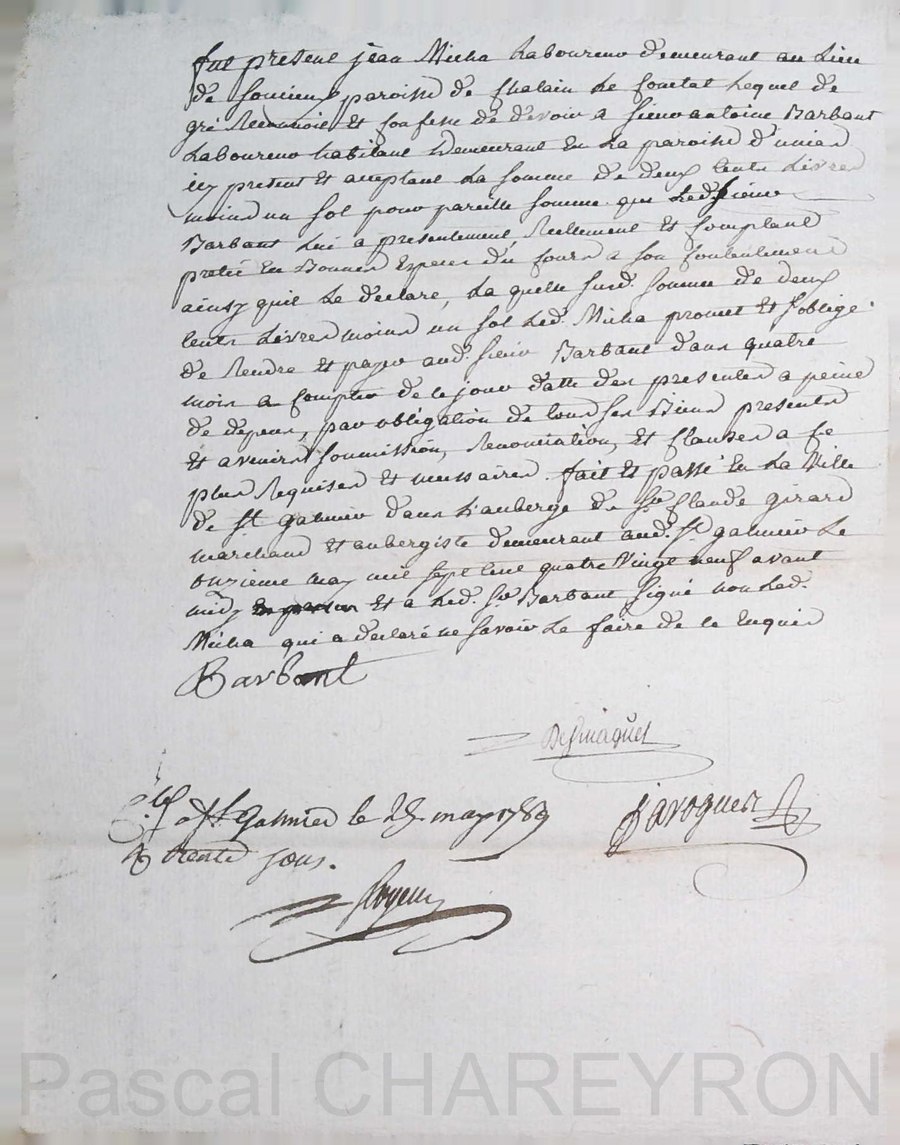 fut present jean Micha Laboureur demeurant au Lieu
de paroisse de Chalain Le Comtal Lequel de
gré Reconnoit et Confesse de devoir a sieur antoine Barbant
Laboureur habitant Demeurant En La paroisse d'unias
icy present et acceptant La somme de deux Cents Livres
moins un sol pour pareille somme que Led. sieur
Barbant Lui a presentement, Reellement et Comptant
preté En Bonnes Especes du Cours a son Contentement
ainsy quil Le declare, La quelle susd. somme de deux
Cents Livres moins un sol Led. Micha promet et s'oblige
de Rendre et payer aud. sieur Barbant dans quatre
mois a Compter de Ce jour datte des presentes a peine
de depens, par obligation de tous ses Biens presents
et avenirs soumission, Renonciation, et Clauses a Ce
plus Requises et necessaires. fait et passé En La Ville
de St. galmier dans L'auberge de Sr. Claude girard
marchand et aubergiste demeurant aud. St. galmier Le
onzieme may mil sept Cent quatre Vingt neuf avant
midy Et a Led. Sr. Barbant signé non Led.
Micha qui a declaré ne savoir Le faire de Ce Enquis
Barbant
Desmaquet
Javogues
a St. Galmier le 25 may 1789
R trente sous.